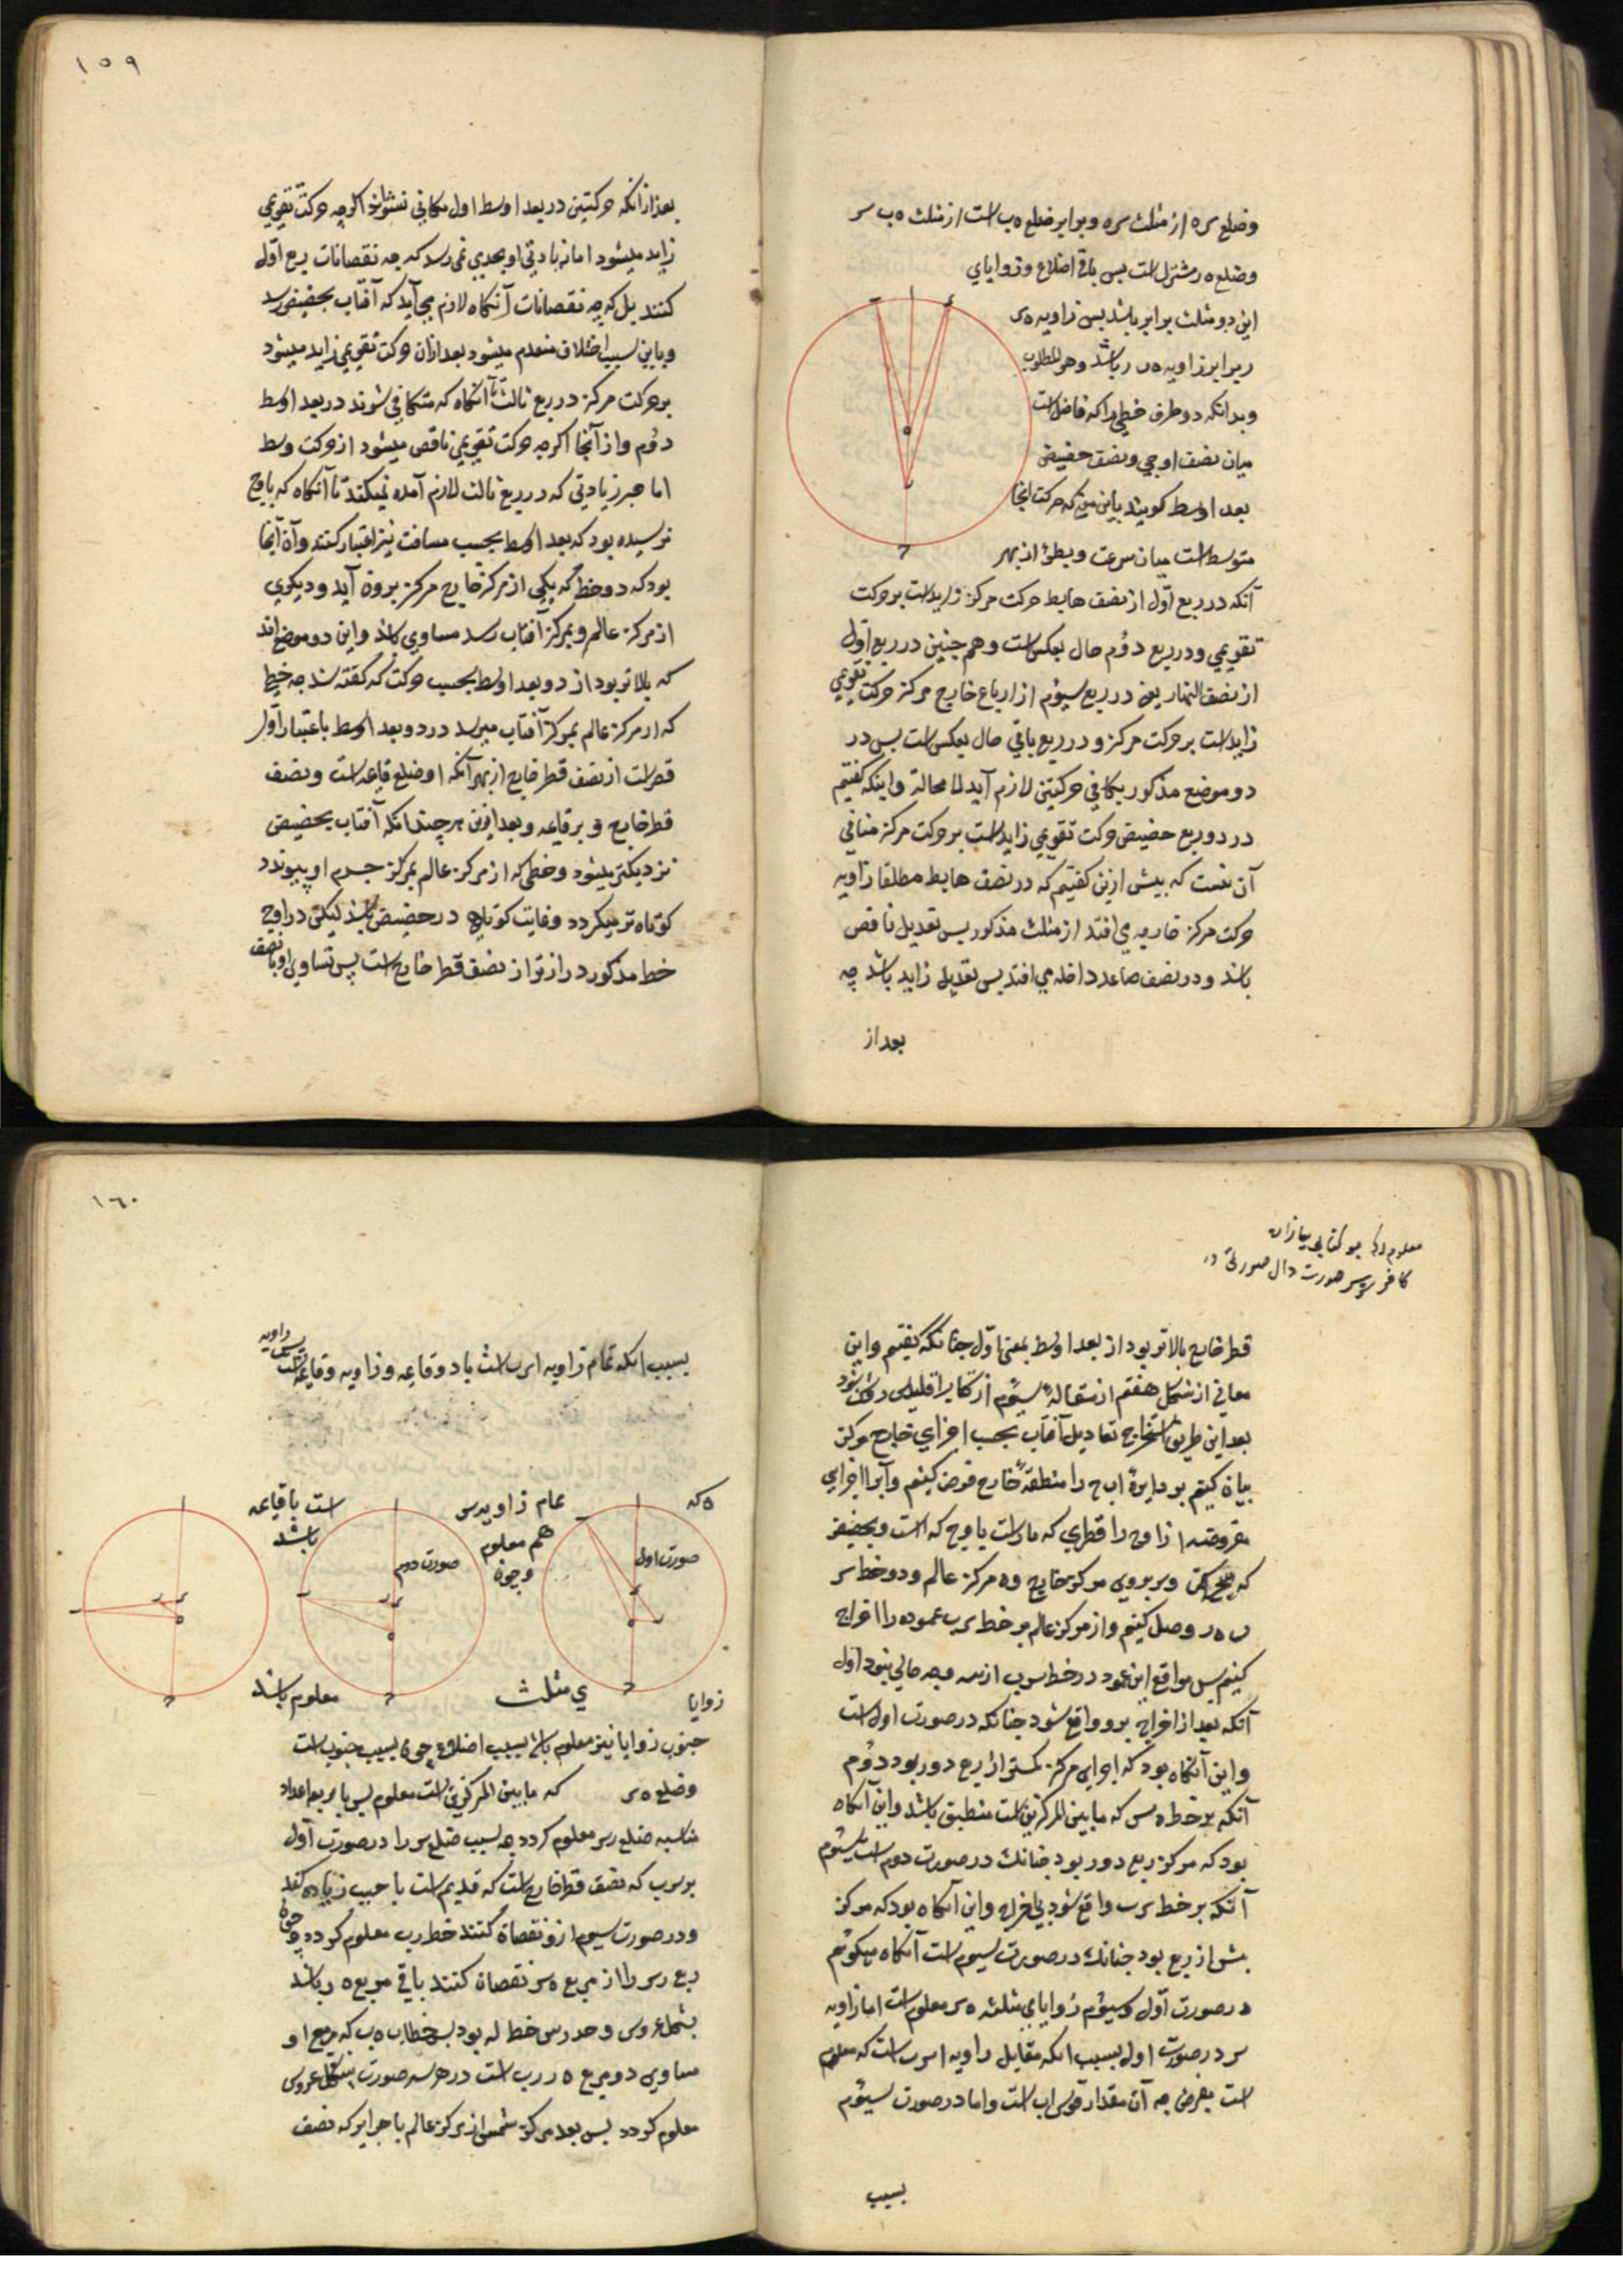 وضلع س ه از مثلث س ه و برابر ضلع ه ب است از مثلث ه ب س
وضلع ه ر مشترك است پس باقی اضلاع و زوایای
این دو مثلث برابر باشد پس زاویه ه س
ر برابر زاویه ه ب ر باشد وهو المطلوب
وبدانکه دو طرف خطی را که فاصل است
میان نصف اوجی ونصف حضیضی
بعد اوسط کویند باین معنی که حرکت انجا
متوسط است میان سرعت وبطؤ از بهر
آنکه در ربع اوّل از نصف هابط حرکت مرکز زاید است بر حرکت
تقویمی ودر ربع دوُم حال بعکس است وهم چنین در ربع اوّل
از نصف النهار یعنی در ربع سیوُم از ارباع خارج مرکز حرکت تقویمی
زاید است بر حرکت مرکز و در ربع باقی حال بعکس است پس در
دو موضع مذکور تکافی حرکتین لازم آید لا محالة واینکه کفتیم
در دو ربع حضیضی حرکت تقویمی زاید است بر حرکت مرکز منافی
آن نیست که پیش ازین کفتیم که در نصف هابط مطلقا زاویه
حرکت مرکز خارجه می افتد از مثلث مذکور پس تعدیل ناقص
باشد ودر نصف صاعد داخله می افتد پس تعدیل زاید باشد چه
بعد از
١٥٩
بعد از انکه حرکتین در بعد اوسط اول مکافی نشوند اکرچه حرکت تقویمی
زاید میشود اما زیادتی او بحدی نمی رسد که جبر نقصانات ربع اوّل
کنند بل که جبر نقصانات آنکاه لازم می آید که آفتاب بحضیض رسد
وباین سبب اختلاف منعدم میشود بعد ازان حرکت تقویمی زاید میشود
بر حرکت مرکز در ربع ثالث تا آنکاه که متکافی شوند در بعد اوسط
دوُم واز آنجا اکرچه حرکت تقویمی ناقص میشود از حرکت وسط
اما جبر زیادتی که در ربع ثالث لازم آمده نمیکند تا آنکاه که باوج
نرسیده بود که بعد اوسط بحسب مسافت نیز اعتبار کنند وآن آنجا
بود که دو خط که یکی از مرکز خارج مرکز برون آید ودیکری
از مرکز عالم وبمرکز آفتاب رسد مساوی باشد واین دو موضع اند
که بالاتر بود از دو بعد اوسط بحسب حرکت که کفته شد چه خطی
که از مرکز عالم بمرکز آفتاب میرسد در دو بعد اوسط باعتبار اول
قصر است از نصف قطر خارج از بهر آنکه او ضلع قاعده است ونصف
قطر خارج وتر قاعمه وبعد ازین هر چندانکه آفتاب بحضیض
نزدیکتر میشود وخطی که از مرکز عالم بمرکز جرم او پیوندد
کوتاه تر میکردد وغایت کوتاهی در حضیض باشد لیکن در اوج
خط مذکور درازتر از نصف قطر خارج است پس تساوی او با نصف
معلوم
قطر خارج بالاتر بود از بعد اوسط بمعنی اوّل چنانکه کفتیم واین
معانی از شکل هفتم از مقاله سیوُم از کتاب اقلیدس روشن شود
بعد این طریق استخراج تعادیل آفتاب بحسب اجزای خارج مرکز
بیان کنیم بود دایره اب ج را منطقه خارج فرض کنیم وآنرا اجزای
مفروضه از اوج را قطری که مار است باوج که است وبحضیض
که ج است وبر بروی مرکز خارج وه مرکز عالم ودو خط س
ب ه ر وصل کنیم واز مرکز عالم بر خط س ب عمود ه ر اخراج
کنیم پس مواقع این عمود در خط س ب از سه وجه خالی نبود اول
آنکه بعد از اخراج برو واقع شود چنانکه در صورت اول است
واین آنکاه بود که اجزای مرکز کمتر از ربع دور بود دوُم
آنکه بر خط ه س که ما بین المرکزین است منطبق باشد واین آنکاه
بود که مرکز ربع دور بود چنانك در صورت دوم است سیوُم
آنکه بر خط س ب واقع شود بی اخراج واین آنکاه بود که مرکز
بیش از ربع بود چنانك در صورت سیوم است آنکاه میکوئیم
در صورت اوّل وسیوُم زوایای مثلث ه س معلوم است اما زاویه
س در صورت اول بسبب انکه مقابل زاویه ا س ب است که معلوم
است بفرض چه آن مقدار قوس اب است واما در صورت سیوُم
بسبب
١٦٠
بسبب انکه تمام زاویه ا س ب است باد وقاعمه وزاویه وقاعمه است
ه که
تمام زاویه س
است باقاعمه
صورت اول
هم معلوم
باشد
صورت دوم
وچون
زوایا
ی مثلث
معلوم باشد
جنوب زوایا نیز معلوم باشد بسبب اضلاع چون بسبب جنوب است
وضلع ه س که ما بین المرکزین است معلوم پس باربعه اعداد
متناسبه ضلع ر س معلوم کردد چه بسبب ضلع س را در صورت اول
بر س ب که نصف قطر خارج است که قدیم است با جیب زیاده کنند
ودر صورت سیوم ازو نقصان کنند خط ر ب معلوم کردد وچون
ربع ر س را از مربع ه س نقصان کنند باقی مربع ه ر باشد
بشکل عروس وحد رس خط له بود پس خط ه ب که مربع او
مساوی دو مربع ه ر ر ب است در هر سه صورت بشکل عروس
معلوم کردد پس بعد مرکز شمس از مرکز عالم باجزایی که نصف